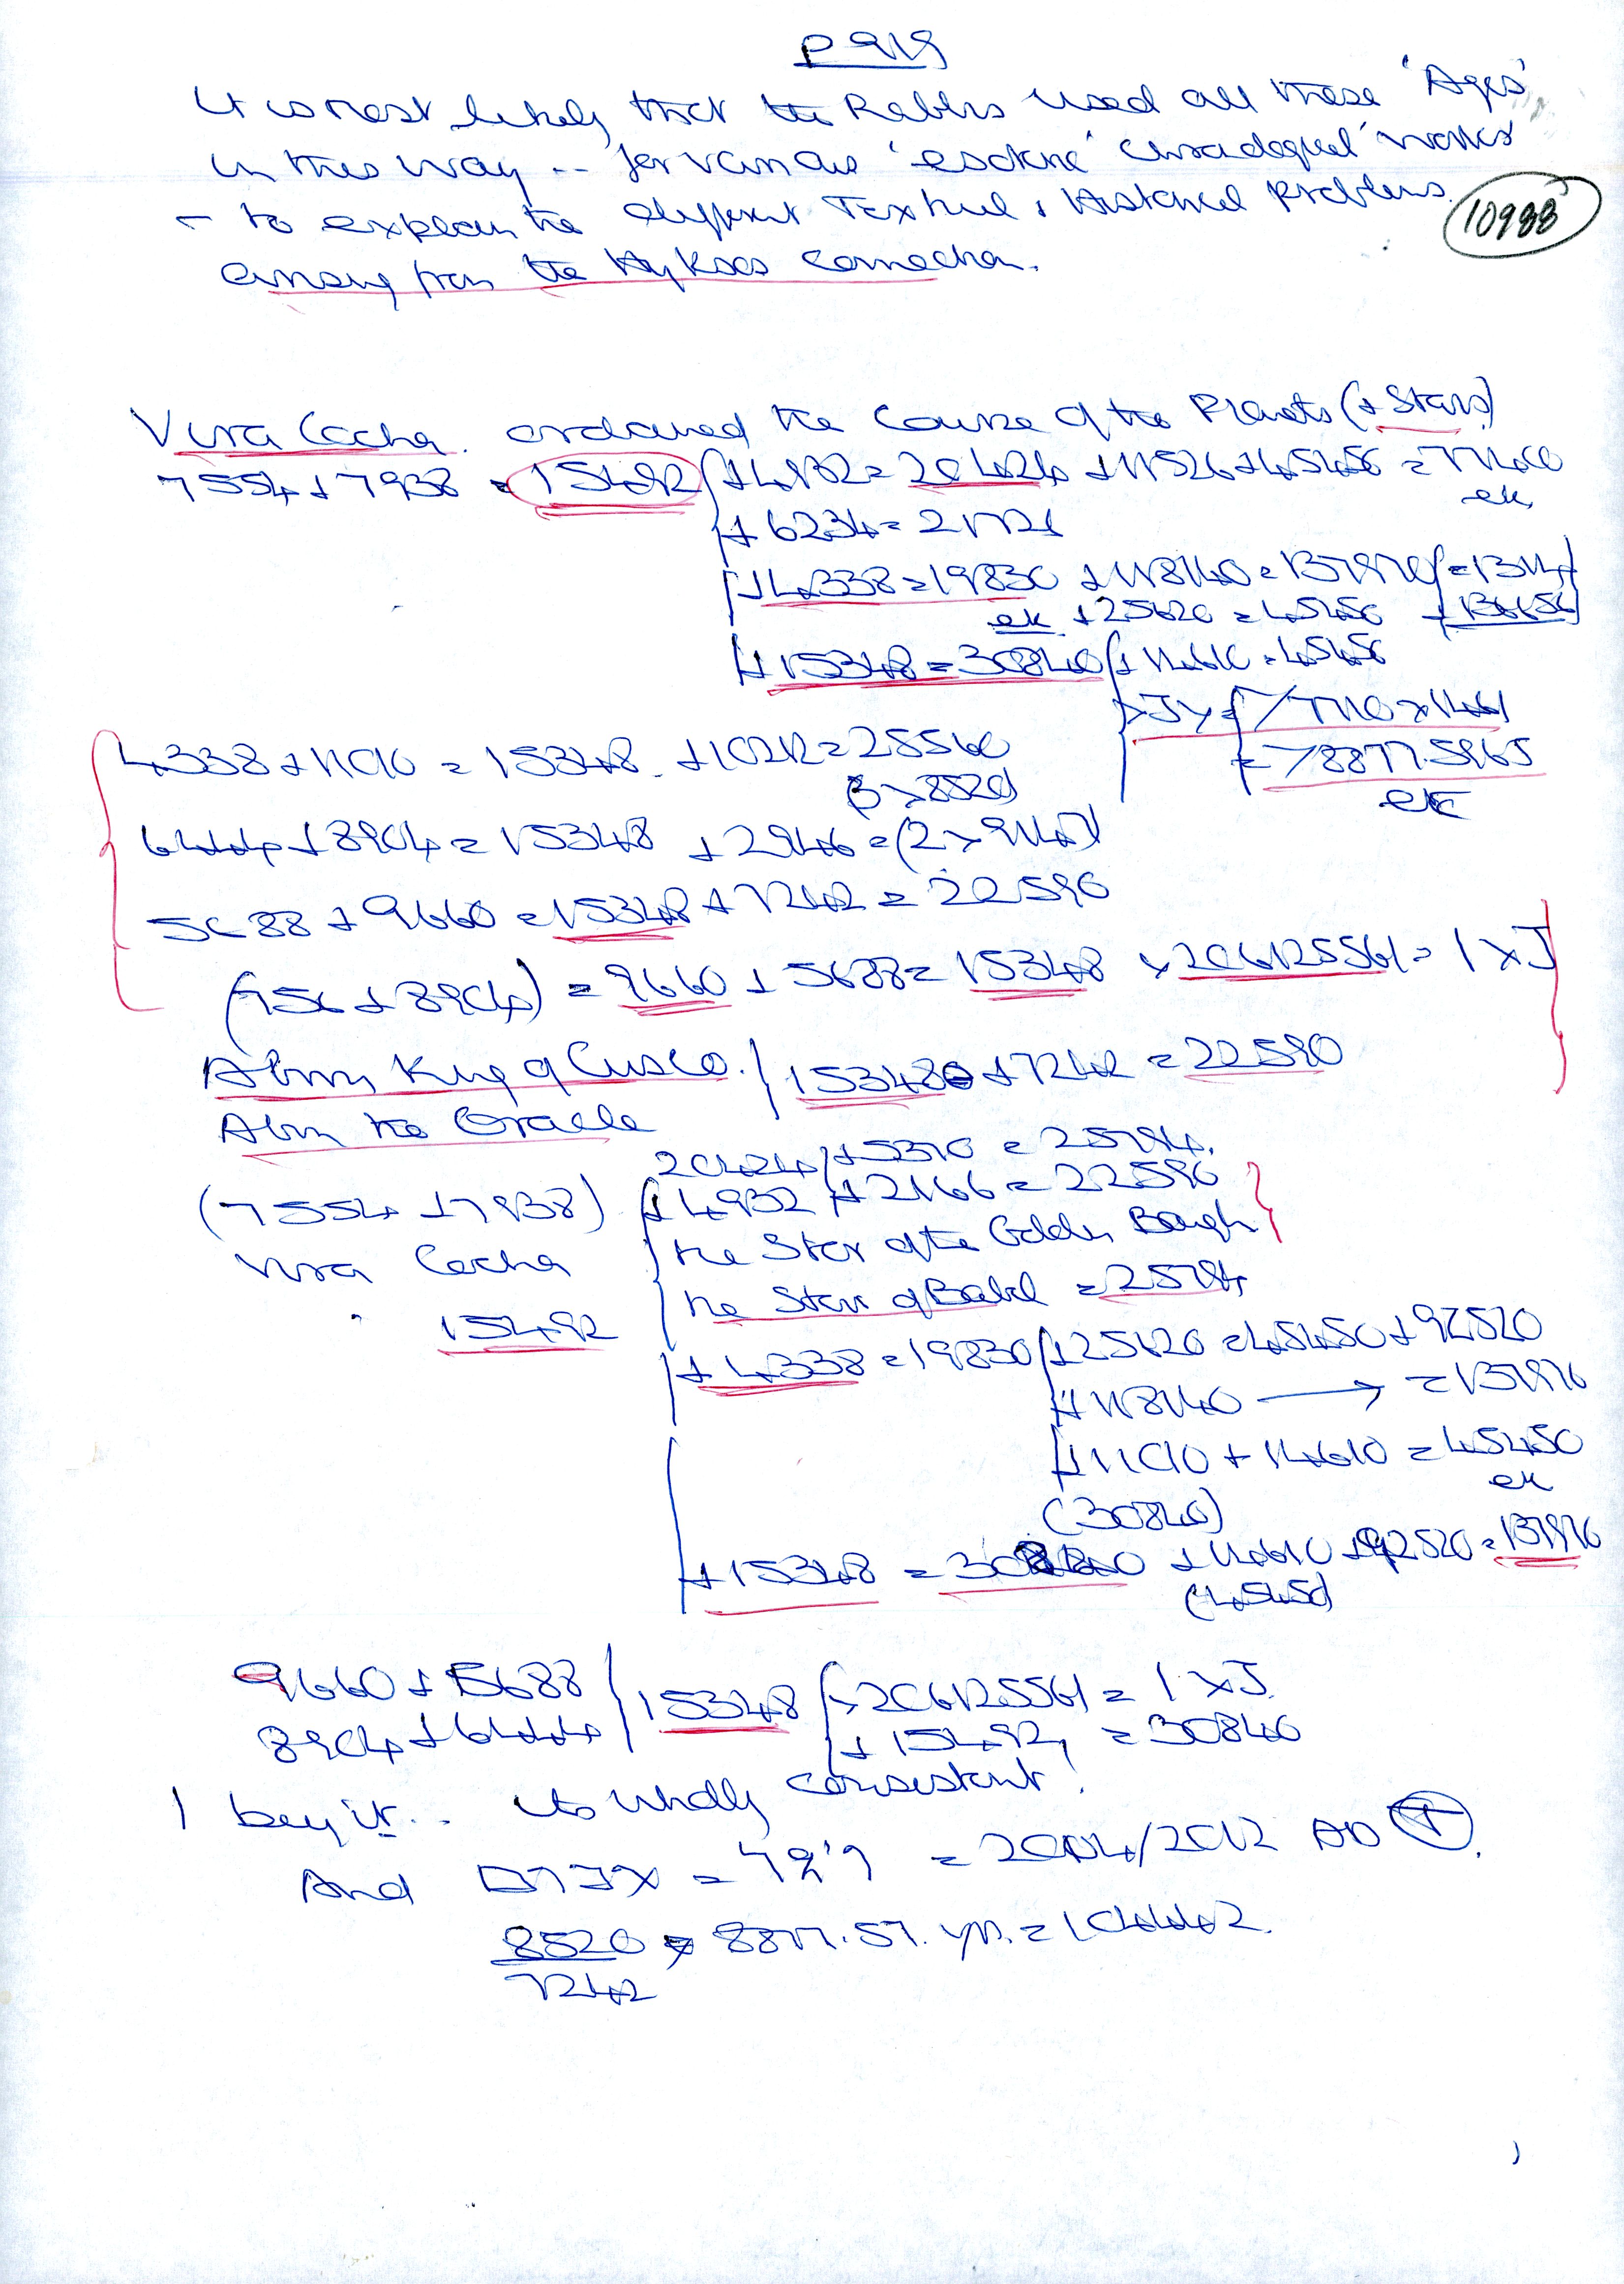 P 919
It is most likely that the Rabbis used all these 'Ages'
in this way -- for various 'esoteric' works
- to explain the different Textual & Historical problems
10988
arising from the Hyksos connection.
Vira Cocha. ordained the Course of the Planets (+ Stars)
7554 + 7938 = 15492 + 4932 = 20424 + 11526 + 45450 = 77400
ek
+ 6234 = 21726
+ 4338 = 19830 + 118140 = 137970
ek + 25620 = 45450
+ 15348 = 30840 + 14610 = 45450
4338 + 11010 = 15348 + 10212 = 25560
(3 x 8520)
= 78877.5965
ek
6444 + 8904 = 15348 + 2946 = (2 x 9147)
5688 + 9660 = 15348 + 7242 = 22590
(756 + 8904) = 9660 + 5688 = 15348 x 206125561 = 1 x J
Abm King of Cusco. 15348 + 7242 = 22590
Abm the Oracle
20424 + 5370 = 25794.
(7554 + 7938) + 4932 + 2166 = 22590
Vira Cocha the Star of the Golden Bough
the Star of Babel = 25794
15492
+ 4338 = 19830 + 25620 = 45450 + 92520
+ 118140 → = 137970
+ 11010 + 14610 = 45450
ek
(30840)
+ 15348 = 30840 + 14610 + 92520 = 137970
(45450)
9660 + 5688 15348 x 206125561 = 1 x J.
8904 + 6444 + 15492, = 30840
I buy it.. its wholly consistent!
And = 2004/2012 AD T.
8520 x 8877.57. yrs. = 10444.2
7242